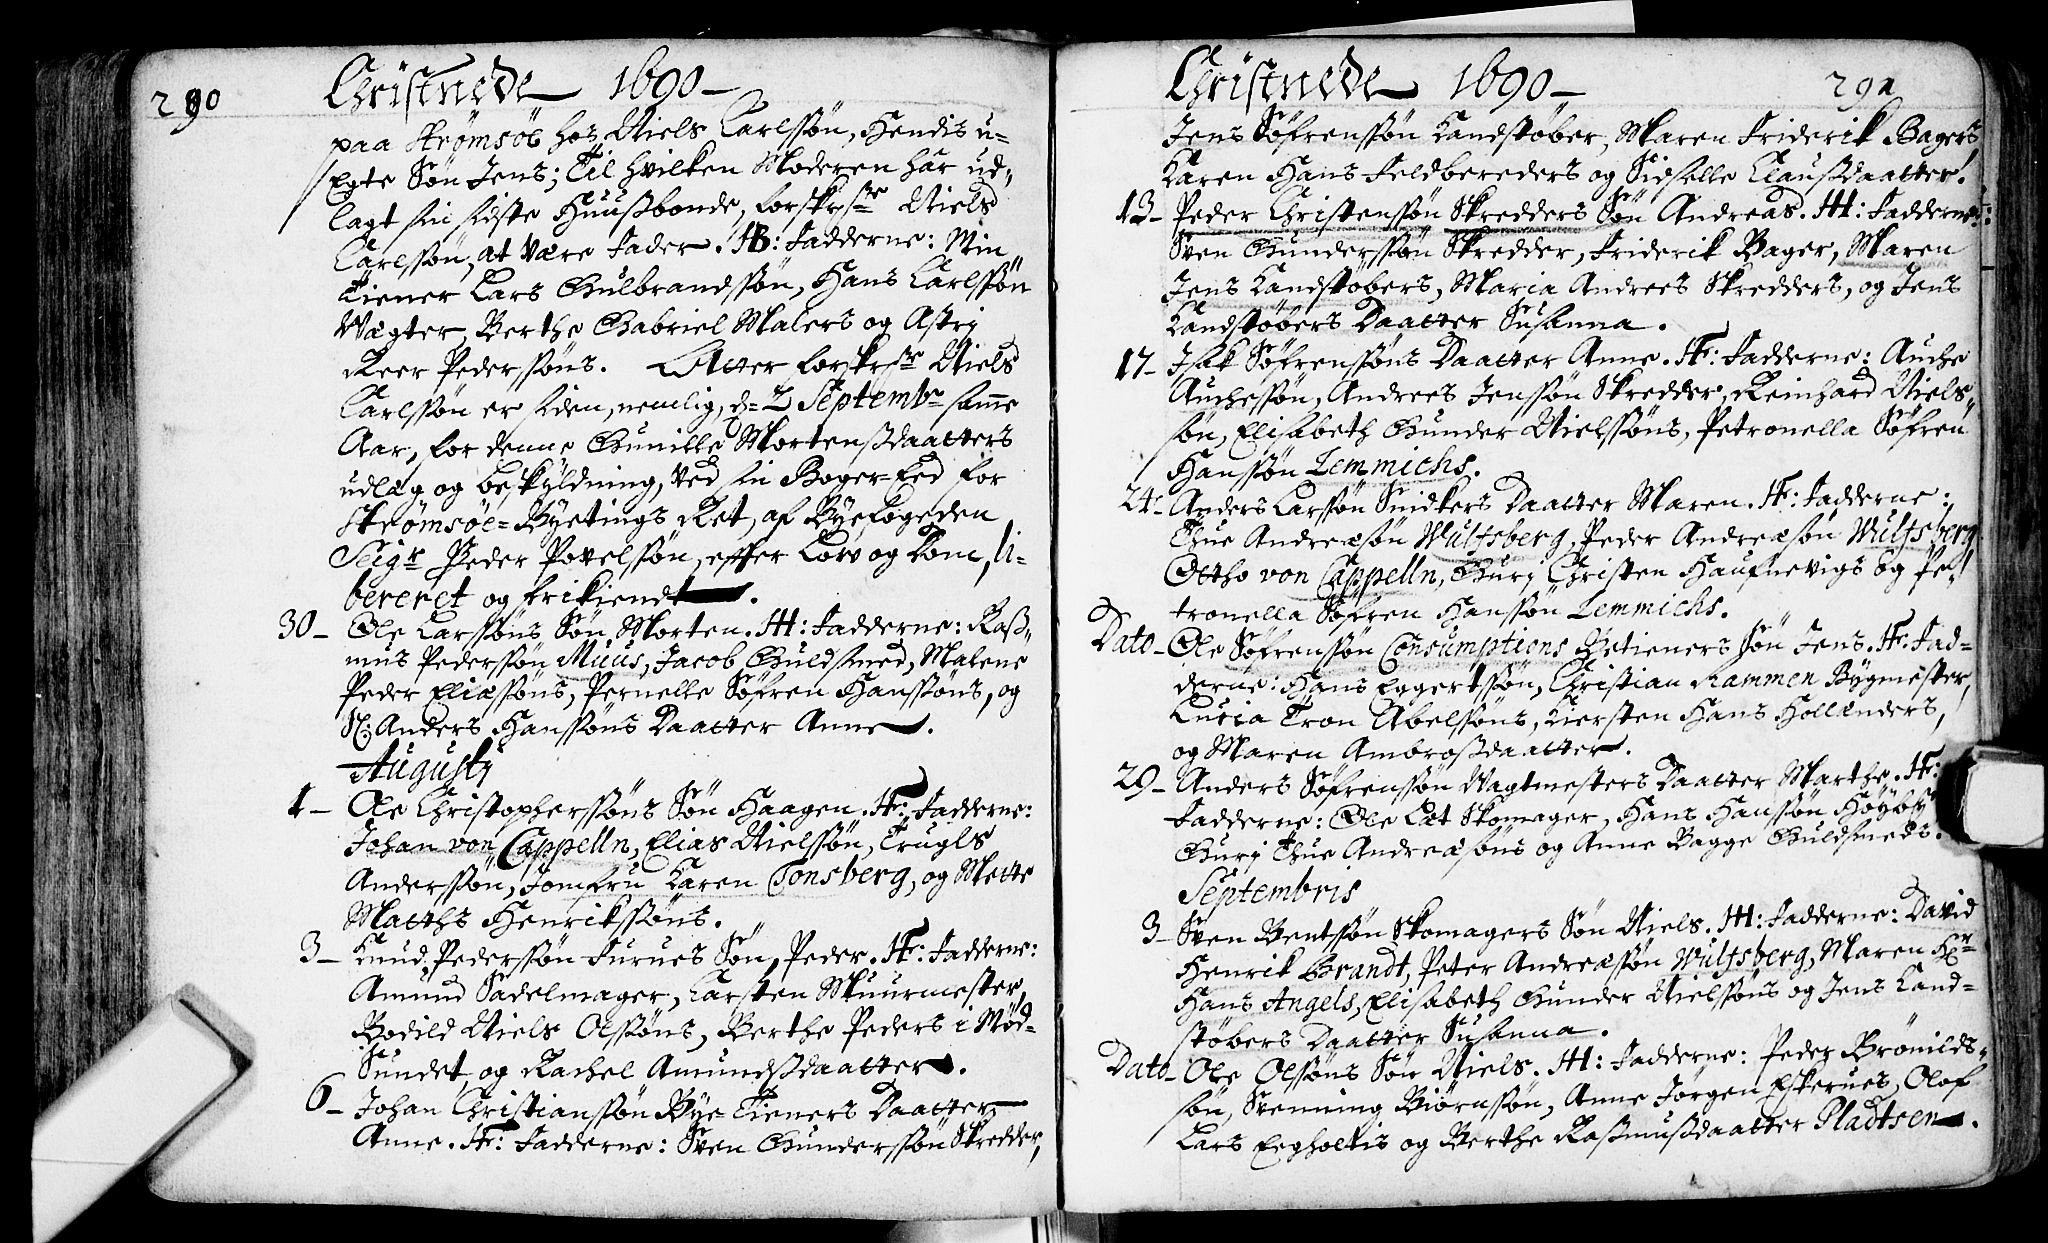 290
Christnede 1690
paa Strømsöe hos Niels Carlssøn, Hendis u-
Egte Søn Jens; Til hvilken Moderen har ud-
lagt sin sidste Huußbonde, forskrfne Niels
Carlssøn, at være Fader. HB: Fadderne: Min
Tiener Lars Gulbrandssøn, Hans Carlssøn
Wægter, Berthe Gabriel Malers og Astri
Reer Pederssøns. Atter forskrfne Niels
Carlssøn er siden, nemlig, d: 2 Septembr samme
Aar, for denne Gunille Mortenßdaatters
udlæg og beskyldning, ved sin Boger-Eed for
Strømsöe-Byetings Ret, af Byefogeden
Seigr Peder Povelssøn, effter Lov og Dom, li-
bereret og frikiendt.
30 Ole Larssøns Søn Morten. HH: Fadderne: Raß-
mus Pederssøn Muus, Jacob Guldsmed, Malene
Peder Eliæssøns, Pernelle Søfren Hanssøns, og
Sl: Anders Hanssøns Daatter Anne.
Augusti
1 Ole Christopherssøns Søn Haagen. Hr: Fadderne:
Johan von Cappelln, Elias Nielssøn, Trugls
Anderssøn, Jomfru Karen Tonsberg, og Mette
Matths Henrikssøns.
3 Knud Pederssøn Furues Søn, Peder. Hr: Fadderne:
Amund Sadelmager, Carsten Muurmester,
Bodild Niels Olssøns, Berthe Peders i Mød-
Sundet og Rachel Amundßdaatter.
6 Johan Christianssøn Bye-Tieners Daatter
Anne. Hr: Fadderne: Sven Gunderssøn Skredder,
Christnede 1690
291
Jens Søfrenssøn Kandstøber, Maren Friderik Bagers
Karen Hans Feldbereders og Sidselle Claußdaatter.
13 Peder Christenssøn Skredders Søn Andreas. HH: Fadderne:
Sven Gunderssøn Skredder, Friderik Bager, Maren
Jens Kandstøbers, Maria Andres Skredders, og Jens
Kandstøbers Daatter Susanna.
17 Isak Søfrenssøns Daatter Anne. Hr: Fadderne: Auche
Auchessøn, Andres Jenssøn Skredder, Reinhard Niels-
søn, Elisabeth Gunder Nielssøns, Petronella Søfren
Hanssøn Lemmichs.
24 Anders Larssøn Snidkers Daatter Maren. Hr: Fadderne:
Thue Andreæsøn Wulfsberg, Peder Andreæsøn Wulfsberg
Ottho von Cappelln, Guri Christen Haufnevigs og Pe-
tronella Søfren Hanssøn Lemmichs.
Dato Ole Søfrenssøn Consumptions Betieners Søn Jens. Hr. Fad-
derne: Hans Eggertssøn, Christian Rammen Bygmester,
Lucia Tron Abelssøns, Kiersten Hans Hollænders,
og Maren Ambroßdaatter.
29 Anders Søfrenssøn Wagtmesters Daatter Marthe. Hr:
Fadderne: Ole Læt Skomager, Hans Hanssøn Høybye
Guri Thue Andreæsøns og Anne Bagge Guldsmeds.
Septembris
3 Sven Bentssøn Skomagers Søn Niels. HH: Fadderne: David
Henrik Brandt, Peter Andreæssøn Wulfsberg, Maren Hr
Hans Angels, Elisabeth Gunder Nielssøns og Jens Kand-
støbers Daatter Susanna.
Dato Ole Olssøns Søn Niels. HH: Fadderne: Peder Brønilds-
søn, Svenning Biørnssøn, Anne Jørgen Eskerues, Olof
Lars Eegholtis og Berthe Raßmußdaatter Pladtsen.